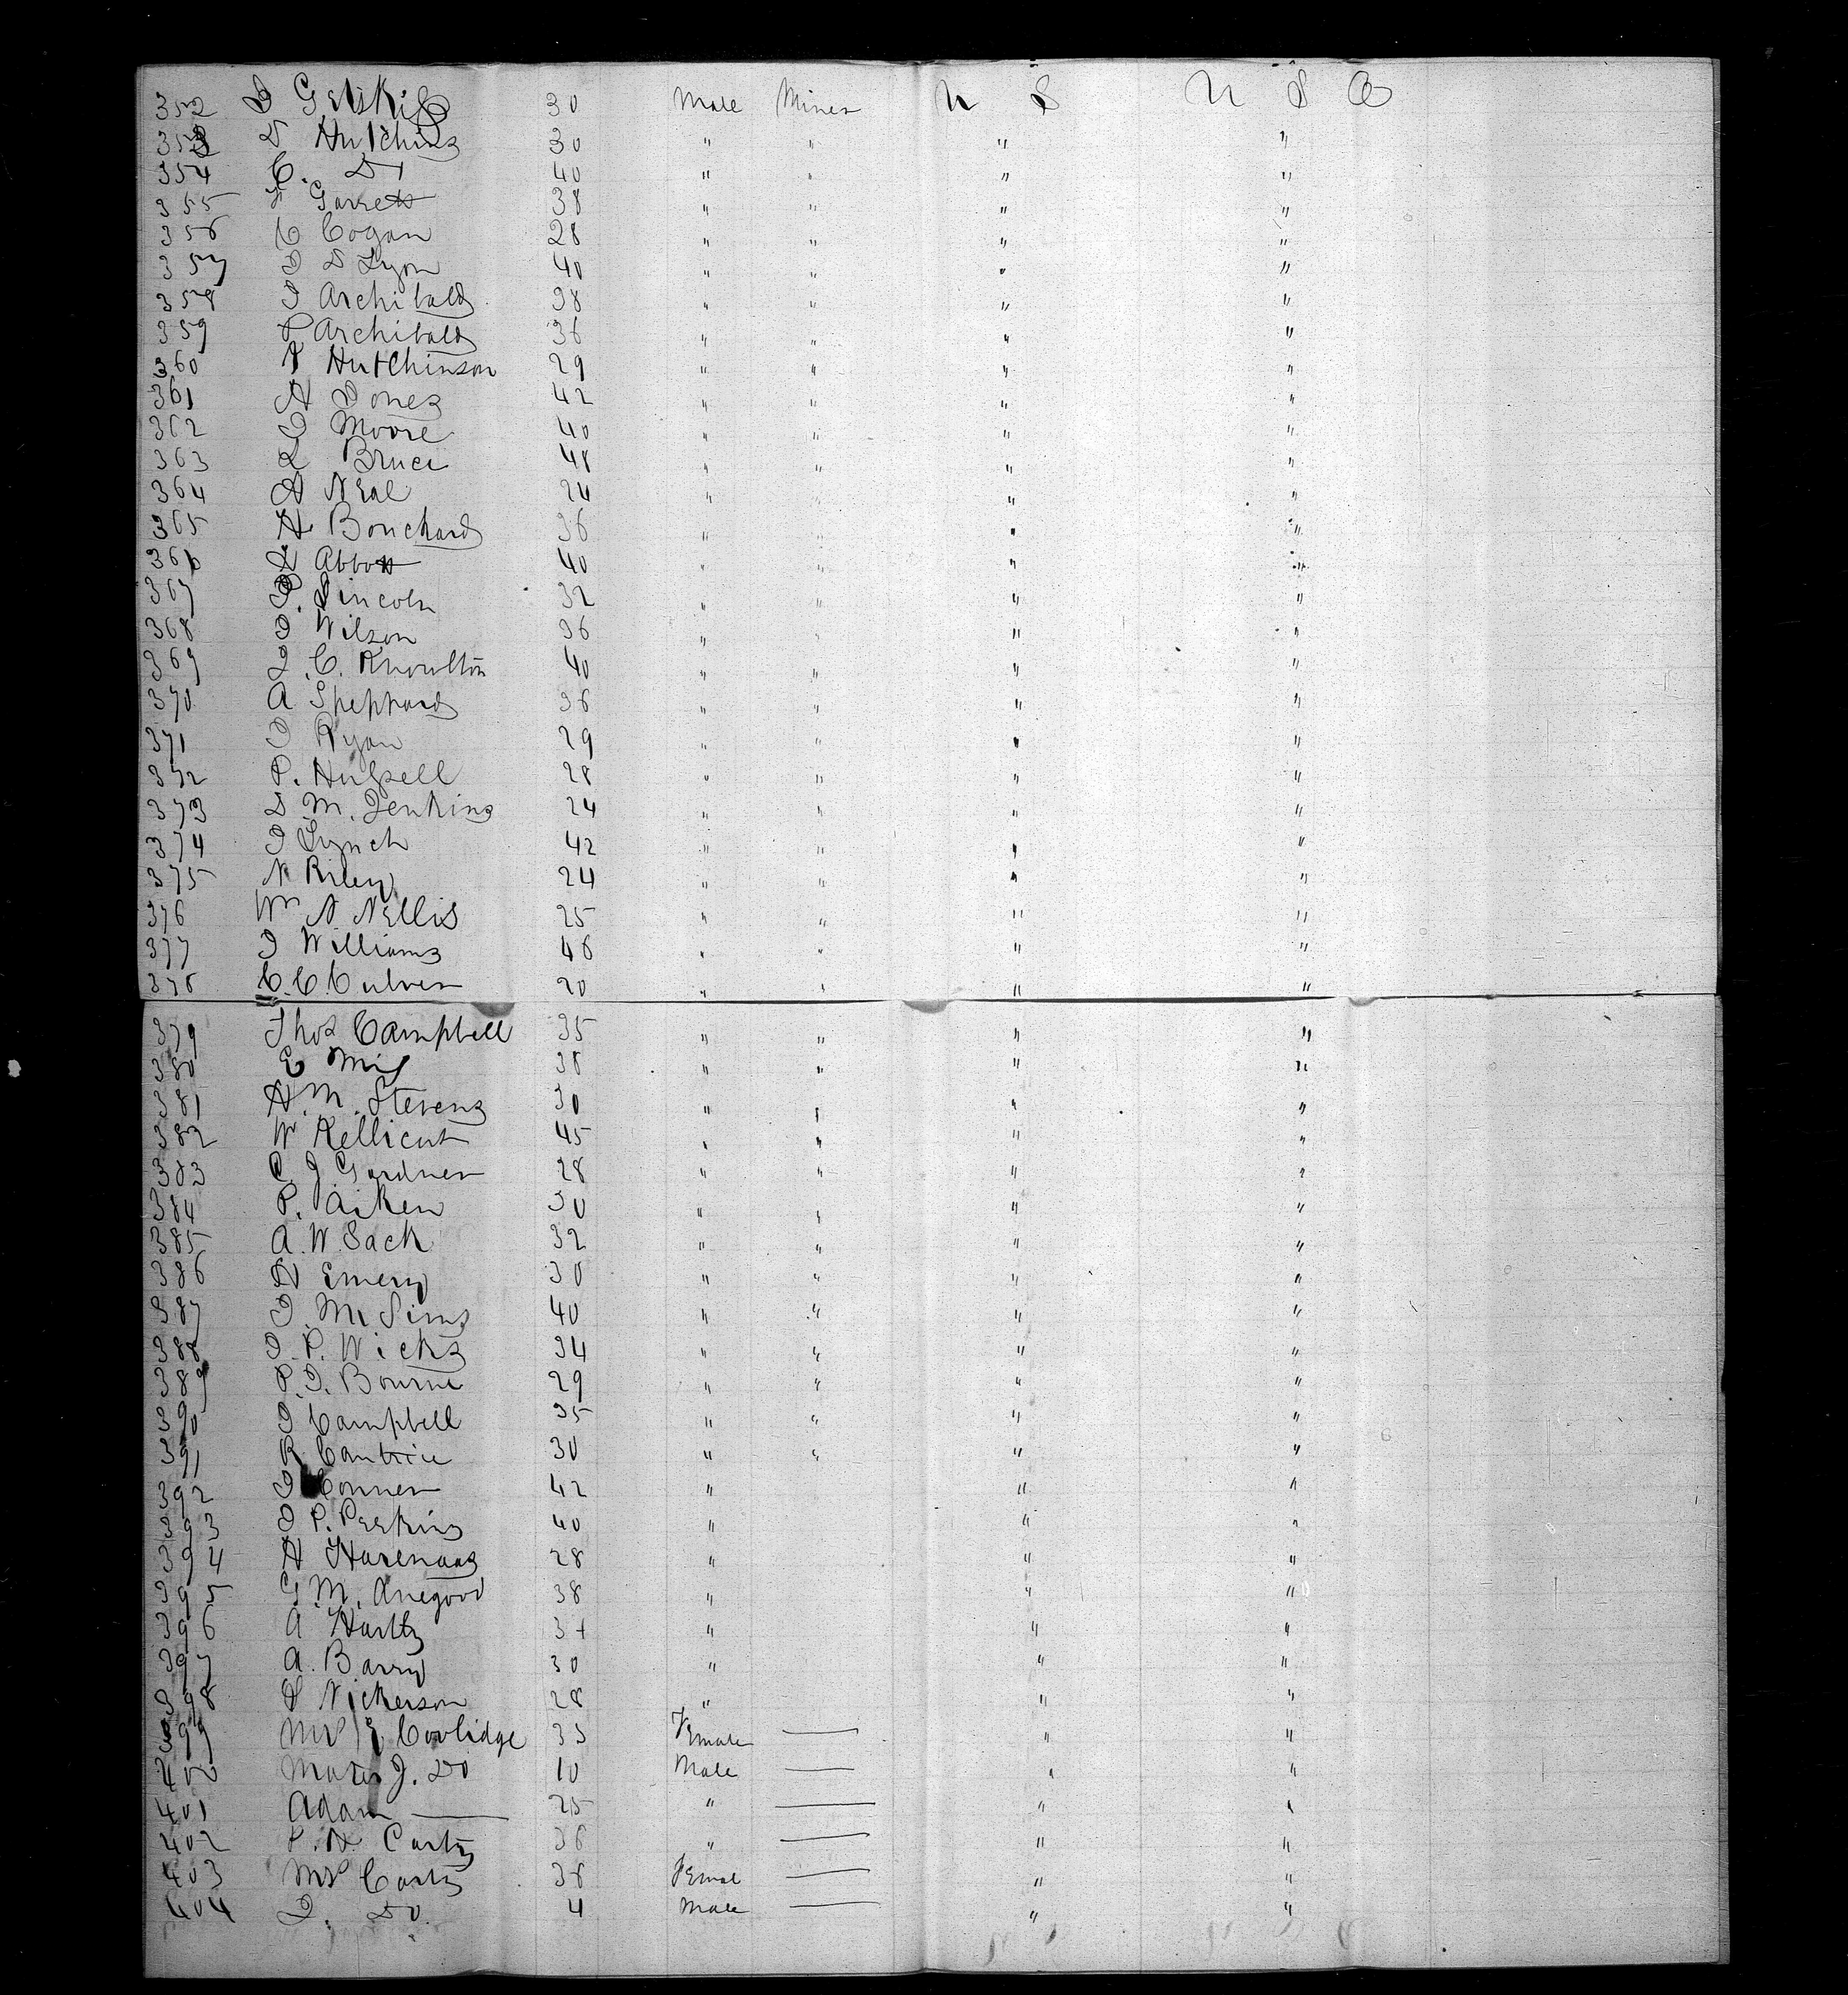 352 30 Male Miner U S U S A
353 Hutchins 30 " " " "
354 C. Do 40 " " " "
355 Garrett 38 " " " "
356 C Cogan 28 " " " "
357 D Lyon 40 " " " "
358 J Archibald 38 " " " "
359 P Archibald 36 " " " "
360 Hutchinson 29 " " " "
361 H Jones 42 " " " "
362 Moore 40 " " " "
363 L Bruce 48 " " " "
364 H Neal 24 " " " "
365 H Bouchard 36 " " " "
366 Abbott 40 " " " "
367 Lincoln 32 " " " "
368 J Wilson 36 " " " "
369 C. Knowlton 40 " " " "
370 A Sheppard 36 " " " "
371 J Ryan 29 " " " "
372 P. 28 " " " "
373 D M. Jenkins 24 " " " "
374 J Lynch 42 " " " "
375 N Riley 24 " " " "
376 Wm N Nellis 25 " " " "
377 J Williams 46 " " " "
378 C. C. Culver 20 " " " "
379 Thos Campbell 35 " " " "
380 E 38 " " " "
381 H. M. Stevens 30 " " " "
382 W Kellicut 45 " " " "
383 C. J. Gardner 28 " " " "
384 P. Aiken 30 " " " "
385 A. W. Sack 32 " " " "
386 H Emery 30 " " " "
387 J. Mc Sims 40 " " " "
388 J. P. Wicks 34 " " " "
389 P. J. Bourne 29 " " " "
390 J Campbell 35 " " " "
391 R. 30 " " " "
392 J Conner 42 " " "
393 J P. Perkins 40 " " "
394 H 28 " " "
395 G. M. 38 " " "
396 A Hartz 34 " " "
397 A. Barry 30 " " "
398 Nickerson 28 " " "
399 Mrs Coolidge 35 Female — " "
400 J. Do 10 Male — " "
401 Adam — 25 " — " "
402 P. N. Carty 36 " — " "
403 Mrs Carty 38 Femal — " "
404 J. Do. 4 Male — " "